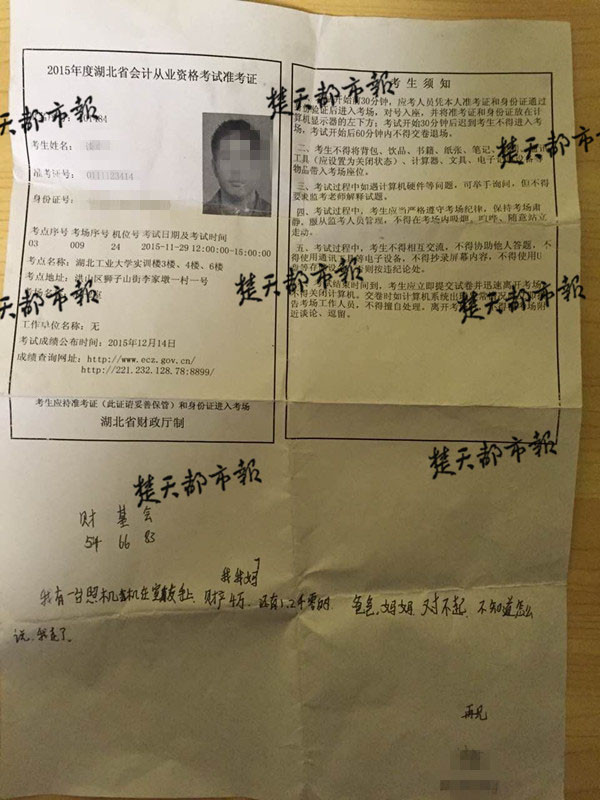 2015年度湖北省会计从业资格考试准考证
考生姓名：
准考证号：
身份证号：
考点序号 考场序号 机位号 考试日期及考试时间
03 009 24 2015-11-29 12:00:00-15:00:00
考点名称：湖北工业大学实训楼3楼、4楼、6楼
考点地址：洪山区狮子山街李家墩一村一号
工作单位名称：无
考试成绩公布时间：2015年12月14日
成绩查询网址：http://www.ecz.gov.cn/
http://221.232.128.78:8899/
考生应持准考证（此证请妥善保管）和身份证进入考场
湖北省财政厅制
考生须知
开始前30分钟，应考人员凭本人准考证和身份证通过
验证后进入考场，对号入座，并将准考证和身份证放在计
算机显示器的左下方；考试开始30分钟后迟到考生不得进入
考场，考试开始后60分钟内不得交卷退场。
二、考生不得将背包、饮品、书籍、纸张、笔记
工具（应设置为关闭状态）、计算器、文具、电子
物品带入考场座位。
三、考试过程中如遇计算机硬件等问题，可举手询问，但不得
要求监考老师解释试题。
四、考试过程中，考生应当严格遵守考场纪律，保持考场肃
静，服从监考人员管理，不得在考场内吸烟、喧哗、随意站立
走动。
五、考试过程中，考生不得相互交流，不得协助他人答题，不
得使用通讯
等电子设备，不得抄录屏幕内容，不得使用U
则按违纪论处。
试结束时间到，考生应立即提交试卷并迅速离开考场
不得关闭计算机。交卷时如计算机系统出
告考场工作人员，不得擅自处理。离开考
近谈论、逗留。
楚天都市報
楚天都市報
楚天都市報
楚天都市報
楚天都市報
楚天都市報
楚天都市報
财 基 会
54 66 83
我有一台照相机
财产4万，还有1.2千零的
爸爸，妈妈，对不起，不知道怎么
说，我走了。
再见